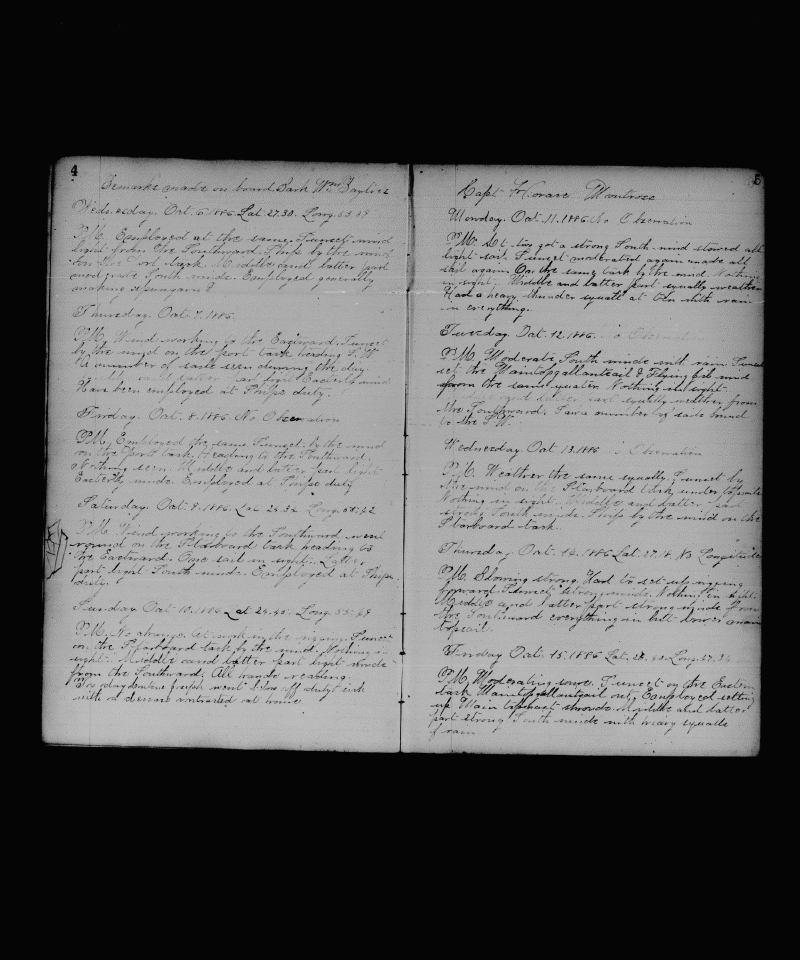 4
Remarks made on board Bark Wm Baylies
Wednesday. Oct. 6 1886. Lat. 27.30. Long. 53.
P.M. Employed at the same. Sunset wind
light from the Southward. Ship by the wind
on the Port tack. Middle and latter part
moderate South winds. Employed generally
making spunyarn
Thursday. Oct. 7. 1886.
P.M. Wind working to the Eastward. Sunset
by the wind on the port tack heading S.W.
A number of sails seen during the day.
latter part light Easterly wind
Have been employed at Ships duty.
Friday. Oct. 8. 1886 No. Observation
P.M. Employed the same. Sunset by the wind
on the Port tack. Heading to the Southward.
Nothing seen. Middle and latter part light
Easterly winds. Employed at Ships duty
Saturday. Oct. 9. 1886 Lat
P.M. Wind working to the Southward went
round on the Starboard tack heading to
the Eastward. One sail in sight. Latter
part light South winds. Employed at Ships
duty.
Sunday Oct 10. 1886 Lat 24.40. Long. 55.
P.M. No change. At work in the rigging. Sunset
on the Starboard tack by the wind. Nothing in
sight. Middle and latter part light winds
from the Southward. All hands reading.
went off duty sick
with a disease contracted at home
5
Capt Horace Montross
Monday. Oct. 11. 1886 No Observation
P.M. got a strong South wind stowed all
light sail. Sunset moderated again made all
sail again. On the same tack by the wind. Nothing
in sight. Middle and latter part squally weather
Had a heavy thunder squall at ten with rain
in everything.
Tuesday. Oct. 12. 1886.
P.M. Moderate South winds with rain Sunset
set the Maintopgallantsail & Flying jib wind
from the same quarter. Nothing in sight.
latter part squally weather from
the Southward. Saw a number of sails bound
to the S.W.
Wednesday Oct 13. 1886 Observation
P.M. Weather the same squally. Sunset by
the wind on the Starboard tack under topsails
Nothing in sight. Middle and latter part
strong South winds. Ship by the wind on the
Starboard tack.
Thursday Oct. 14. 1886 Lat. 27.18. No Longitude
P.M. Blowing strong. Had to set up rigging
forward. Sunset strong winds. Nothing in sight.
Middle and latter part strong winds from
the Southward everything in but lower main
topsail.
Friday Oct. 15. 1886 Lat. Long. 57.
P.M. Moderating some. Sunset on the Eastern
tack Maintopgallantsail out. Employed setting
up Main topmast shrouds. Middle and latter
part strong South winds with heavy squalls
of rain